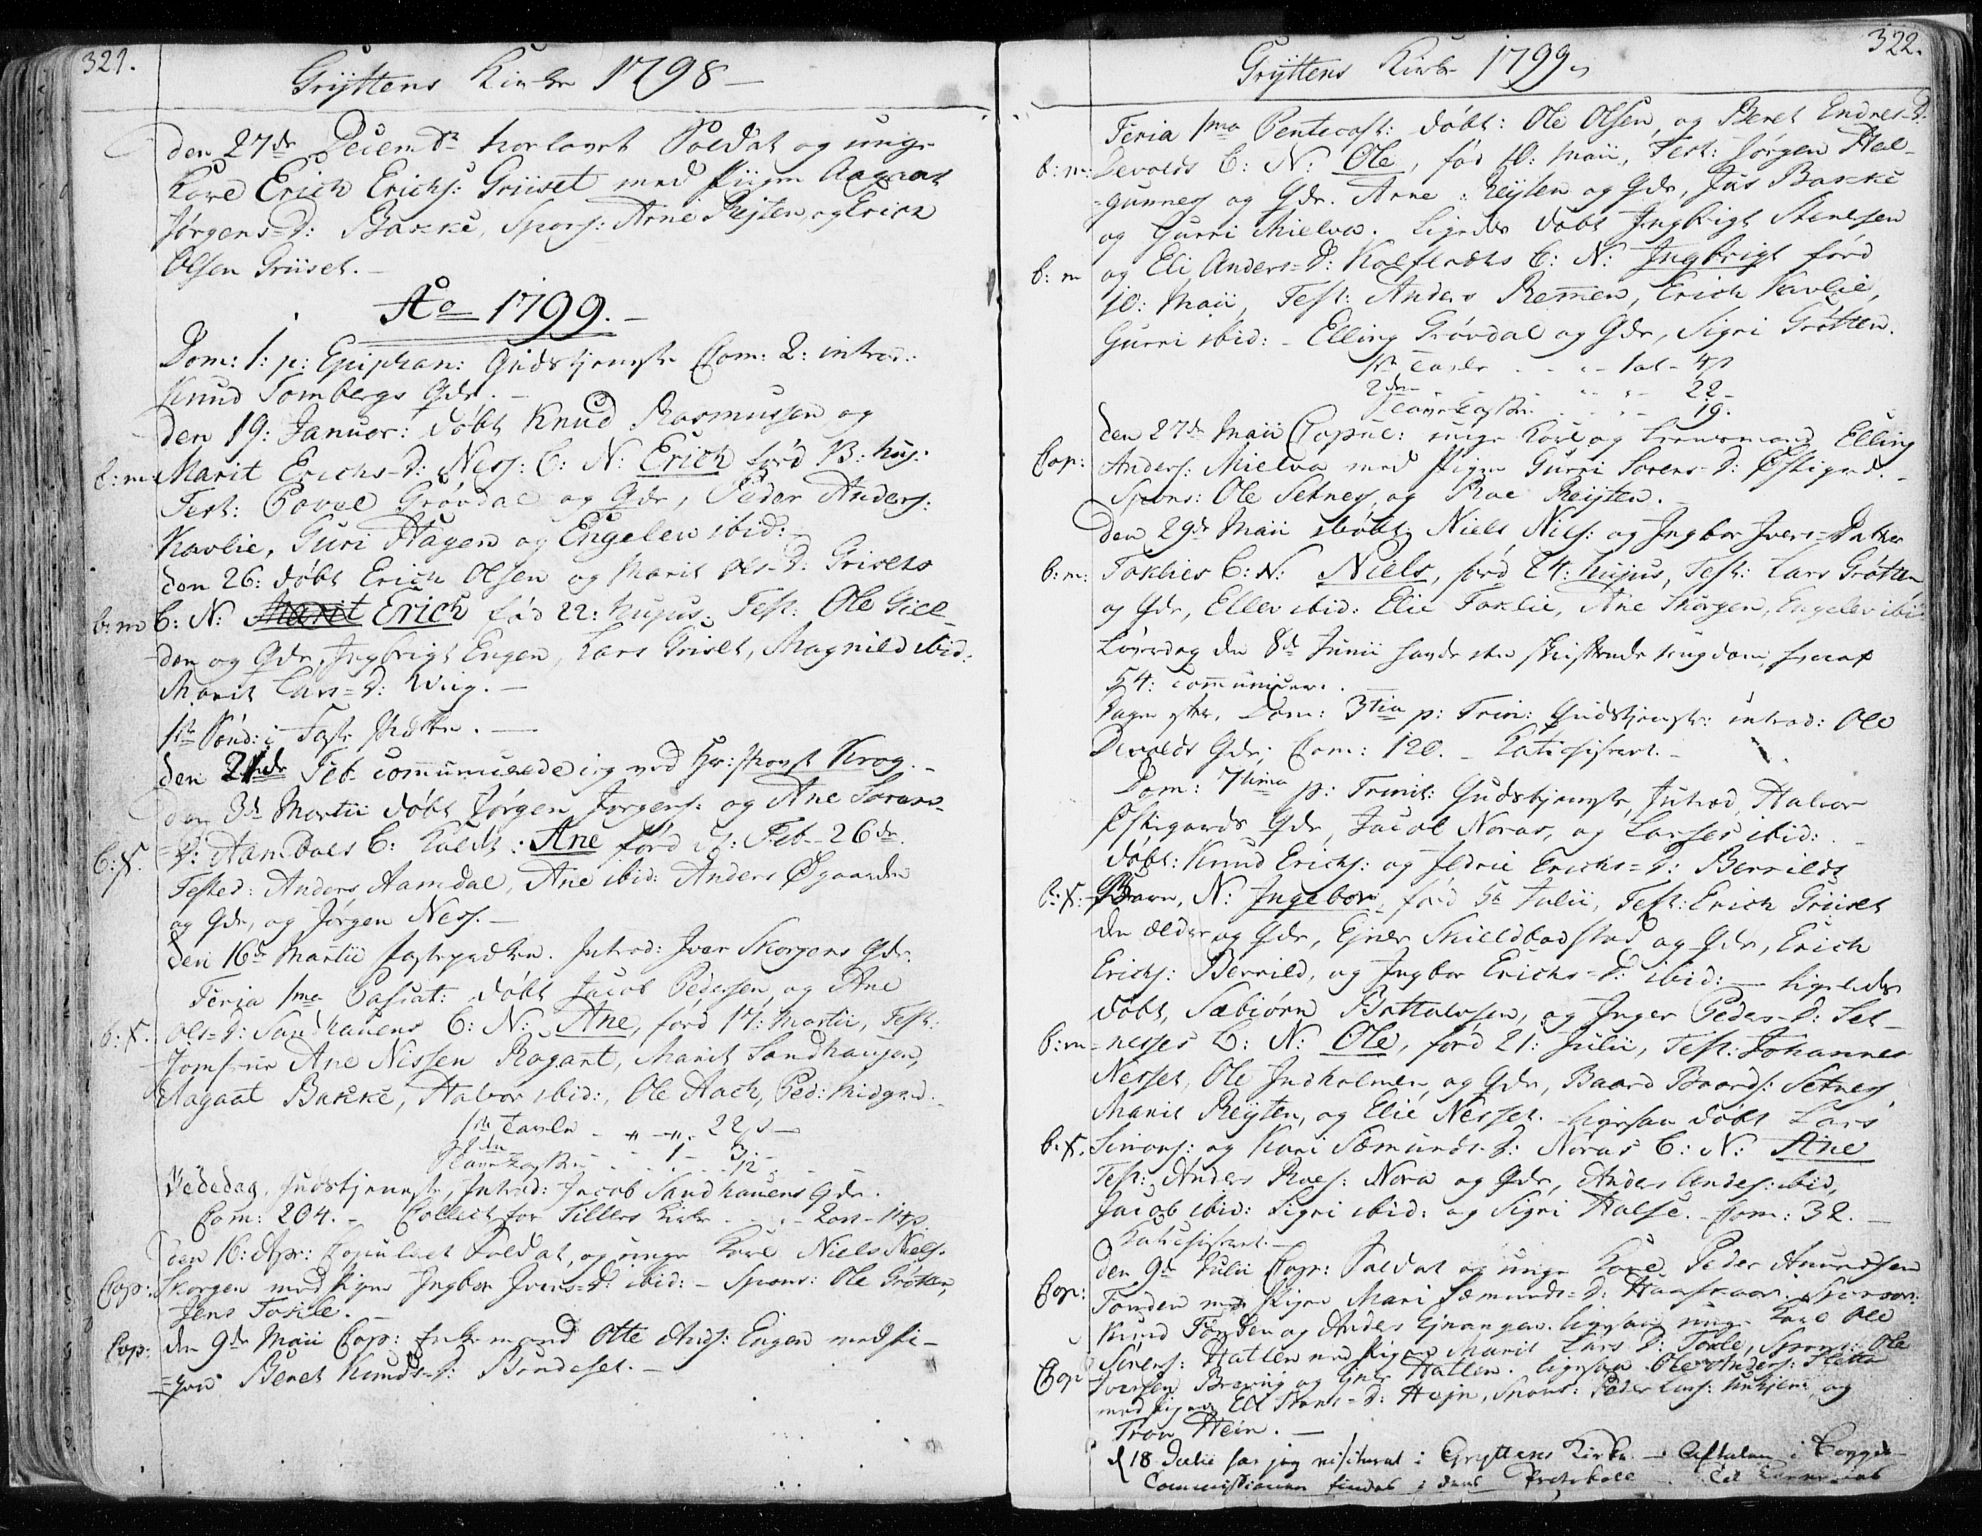 321.
Gryttens Kirke 1798 –
den 27de Decembr trolovet Soldat og unge
Karl Erich Erichs: Griiset med Piigen Aagaat
Jørgens-D: Bakke, Spons: Arne Rejten og Erich
Olsen Griiset. –
Ao 1799. –
Dom: 1: p: Epiphan: Gudstjeneste Com: 2: introd:
Knud Sombergs Qde. –
den 19: Januar: døbt Knud Rasmussen og
b: m: Marit Erichs-D: Ness: B: N: Erich fød 13: huj:
Test: Povel Grøvdal og Qde, Peder Anders:
Kavlie, Guri Hagen og Engelev ibid: –
den 26: døbt Erich Olsen og Marit Ols-D: Grisets
b: m B: N: Marit Erich fød 22: hujus. Test: Ole Giel-
den og Qde, Ingbrigt Engen, Lars Griset, Magnild ibid:
Marit Lars-D: Wiig. –
1ste Sønd: i Faste
den 21de Feb communicerede jeg ved Hr: Provst Krog. –
den 3de Martii døbt Jørgen Jørgens: og Ane Sørens-
B: X. D: Aamdals B: kaldt: Ane fød d: Feb- 26de
Testes: Anders Aamdal, Ane ibid: Anders Øgaarden
og Qde, og Jørgen Ness. –
den 16de Martii Introd: Iver Skorgens Qde.
Feria 1ma Pascat: døbt Jacob Pedersen og Ane
b: X. Ols-D: Sandhauens B: N: Ane, fød 17: Martii, Test:
Jomfrue Ane Nissen Rogant, Marit Sandhaugen,
Aagaat Bakke, Halvor ibid:, Ole Hach, Ped: Midgrd: –
1ste Tavle – „ – „ 22 s –
2den 1 – 3 –
12
Bededag, Gudstjeneste, Introd: Jacob Sandhauens Qde.
Com: 204. – Collect for Tillers Kirke
den 16: Apr: Copuleret Soldat, og unge Karl Niels Niels:
Cop: Skorgen med Pigen Ingbor Ivers-D: ibid: – Spons: Ole Grøtten,
Jens Tokle. –
Cop: den 9de Maii Cop: Enkemand Otte Ands: Engen med Pi-
=gen Beret Knuds-D: Brudeset. –
322.
Gryttens Kirke 1799
Feria 1ma Pentecost: døbt: Ole Olsen, og Beret Endres-D:
b: m: Devolds B: N: Ole, fød 10: Maii, Test: Jørgen Hal-
=gunnes og Qde. Arne Rejten og Qde, Jus Bakke
og Gurri Mielva. Ligedes døbt Ingbrigt Stenesen
b: m og Eli Anders-D: Kalflaths B: N: Ingbrigt fød
10: Maii, Test: Anders Remen, Erich Kavlie,
Gurri ibid: – Elling Grøvdal og Qde, Sigri Grøtten.
1ste Tavle
2den – 22 –
19.
den 27de Maii Copul: unge Karl og Elling
Cop: Anders: Mielva med Pigen Gurri Sørens-D: Østigrd. –
Spons: Ole Setnes, og Roe Rejten. –
den 29de Maii døbt Niels Niels: og Ingbor Ivers-Datter
b: m: Toklies B: N: Niels, fød 24: hujus, Test: Lars Grøtten
og Qde, Ellev ibid: Elie Toklie, Ane Skorgen, Engelev ibid
Løverdag den 8de Junii havde den skriftende Ungdom, hvoraf
54: communicer: –
Dagen efter, Dom: 3tia p: Trin: Gudstjeneste: introd: Ole
Devolds Qde; Com: 120. – Katechiseret –
Dom: 7tima p: Trinit: Gudstjeneste, Introd, Halvor
Østigaards Qde, Jacob Noras, og Larses ibid: –
døbt: Knud Erichs: og Ildrie Erichs-D: Berrilds
b: X: Barn, N: Ingebor, fød 5te Julii, Test: Erich Griiset
den ældre og Qde, Ejner Skieldbodstad og Qde, Erich
Erichs: Berrild, og Ingbor Erichs-D: ibid: – Ligeledes
døbt, Sæbiørn Bottolvsen, og Inger Peders-D: Set-
b: m =nesses B: N: Ole, fød 21: Julii, Test: Johannes
Nesset, Ole Indholmen og Qde, Baard Baards: Setnes,
Marit Rejten, og Elie Nesset. Ligesaa døbt Lars
b: X. Simons: og Kari Sæmunds-D: Noras B: N: Ane
Test: Anders Roes: Nora og Qde, Anders Anders: ibid,
Jacob ibid: Sigri ibid: og Sigri Halse. – Com: 32. –
Katechiseret –
den 9de Julii Cop: Soldat og unge Karl Peder Amundsen
Cop: Tonden med Pigen Mari Sæmunds-D: Sponsor:
Knud Tonden og Anders ligesaa unge Karl Ole
Sørens: Hatlen med Pigen Marit Lars D: Tokle, Spons: Ole
Cop Iversen Brevig og Hatlen. ligesaa Ole Anders: Sletta
med Pigen Eli Trons-D: Hejn, Spons: Peder Lars: og
Tron Hein. –
d 18 Julii har jeg visiteret i Gryttens Kirke. –
Commissionen findes i dens Protokoll